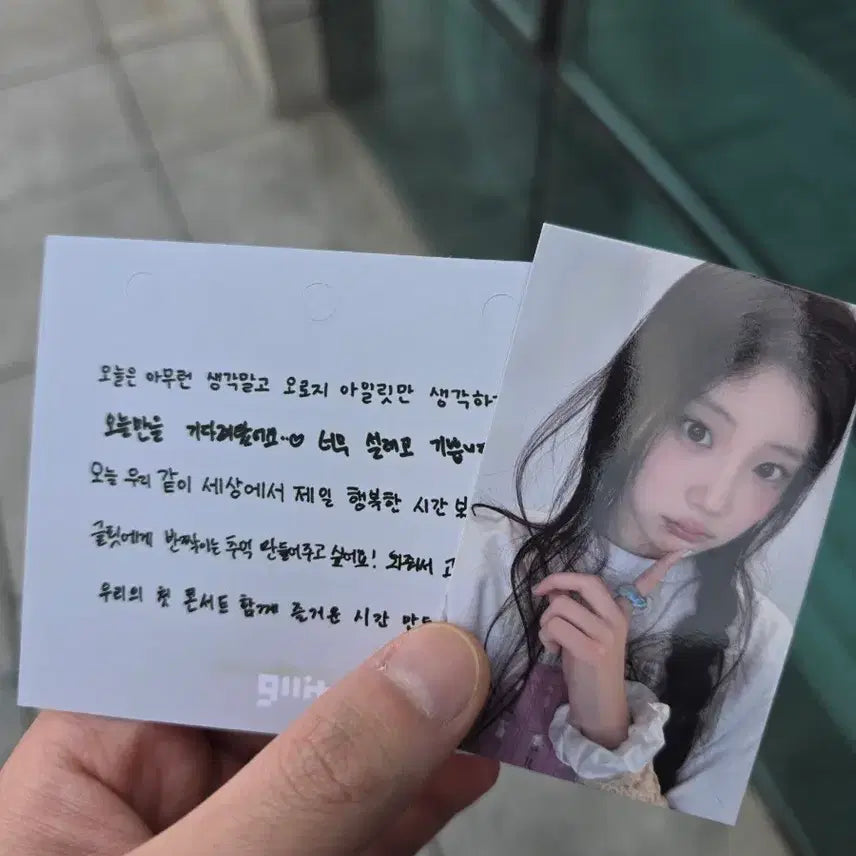 오늘은 아무런 생각말고 오로지 아일릿만 생각하
오늘만을 기다려왔어요..♡ 너무 설레고 기쁩니
오늘 우리 같이 세상에서 제일 행복한 시간 보
글릿에게 반짝이는 추억 만들어주고 싶어요! 와줘서 고
우리의 첫 콘서트 함께 즐거운 시간 만